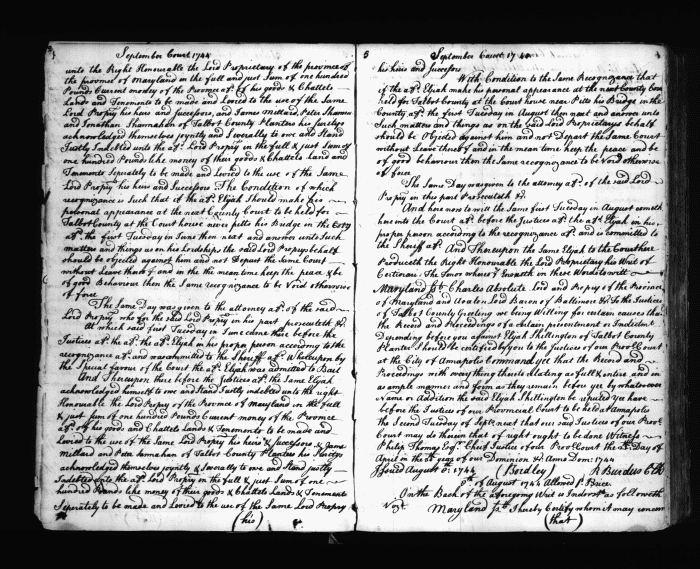 September Court 1744
unto the Right Honourable the Lord Proprietary of the province of
the province of Maryland in the full and just Sum of one hundred
Pounds Current money of the Province afd. of his goods & Chattels
Lands and Tenements to be made and Levied to the use of the Same
Lord Propry his heirs and Successors, and James Millard, Peter Shanna
and Jonathan Shannahan of Talbot County Planters his Suretys
acknowledged themselves joyntly and Severally to owe and Stand
Justly Indebted unto the afd. Lord Propry in the full & just Sum of
one hundred Pounds like money of their goods & Chattels Land and
Tenements Seperately to be made and Levied to the use of the Same
Lord Propry his heirs and Successors The Condition of which
recognizance is Such that if the afd. Elijah Should make his
personal appearance at the next County Court to be held for
Talbot County at the Court house near pitts his Bridge in the Coty
afd. the first Tuesday in June then next and answer unto Such
matters and things as on his Lordships the said Lord Proprys behalf
should be objected against him and not Depart the same Court
without Leave thereof and in the the mean time keep the peace & be
of good Behaviour then the Same recognizance to be Void otherwise
of force
The Same Day was given to the attorney afd. of the said
Lord Propry who for the said Lord Propry in his part prosecuteth &c.
At which said first Tuesday in June came there before the
Justices afd. the afd. Elijah in his proper person according to the
recognizance afd. and was committed to the Sheriff afd. Whereupon by
the Special favour of the Court the afd. Elijah was admitted to Bail
And Thereupon there before the Justices afd. the Same Elijah
acknowledged himself to owe and Stand Justly indebted unto the right
Honourable the Lord Propry of the Province of Maryland in the full
& just sum of one hundred Pounds Current money of the Province
afd. of his goods and Chattels Lands & Tenements to be made and
Levied to the use of the Same Lord Propry his heirs & Successors & James
Millard and Peter hannahan of Talbot County Planters his Suretys
acknowledged themselves joyntly & Severally to owe and Stand justly
Indebted unto the afd. Lord Propry in the full & just Sum of one
hundred Pounds like money of their goods & Chattels Lands & Tenements
Seperately to be made and Levied to the use of the Same Lord Propry
(his)
5
September Court 1744
his heirs and Successors
With Condition to the Same Recognizance that
if the afd. Elijah make his personal appearance at the next County Cou
held for Talbot County at the Court house near Pitts his Bridge in the
County afd. the first Tuesday in August then next and answer unto
Such matters and things as on the Lord Proprietarys behalf
should be Objected against him and not Depart the Same Court
without Leave thereof and in the mean time keep the peace and be
of good behaviour then the Same recognizance to be Void otherwise
of force
The Same Day was given to the attorney afd. of the said Lord
Propry in this part Prosecuteth &c.
And here now to wit the Same first Tuesday in August cometh
here into the Court afd. before the Justices afd. the afd. Elijah in his
proper person according to the recognizance afd. and is committed to
the Sheriff afd. And Thereupon the Same Elijah to the Court here
Produceth the Right Honourable the Lord Proprietary his Writ of
Certiorari The Tenor whereof Ensueth in these Words to witt
Maryland Sct. Charles Absolute Lord and Propry of the Province
of Maryland and Avalon Lord Baron of Baltimore &c. To the Justices
of Talbot County Greeting we being Willing for certain causes that
the Record and Proceedings of a certain presentment or Indictment
Depending before you against Elijah Skillington of Talbot County
Planter Should be certified by you to the Justices of our Provl. Court
at the City of Annapolis Command yee that the Record and
Proceedings with every thing thereto Relating as full & entire and in
as ample manner and form as they remain before yee by whatsoever
Name or Addition the said Elijah Skillington be reputed yee have
before the Justices of our Provincial Court to be held at Annapolis
the Second Tuesday of Septr. next that our said Justices of our Provl.
Court may do therein that of right ought to be done Witness
Philip Thomas Esqr. Chief Justice of our Provl. Court the Day of
April in the year of our Dominion &c. Anno Dom: 1744
Issued August 1744 (Bordley) R Burdus Clk
of August 1744 Allowed Pr. Price
On the Back of the aforegoing Writ is Indorst as followeth
Vizt. Maryland Sct. I hereby Certify whom it may concern
(that)